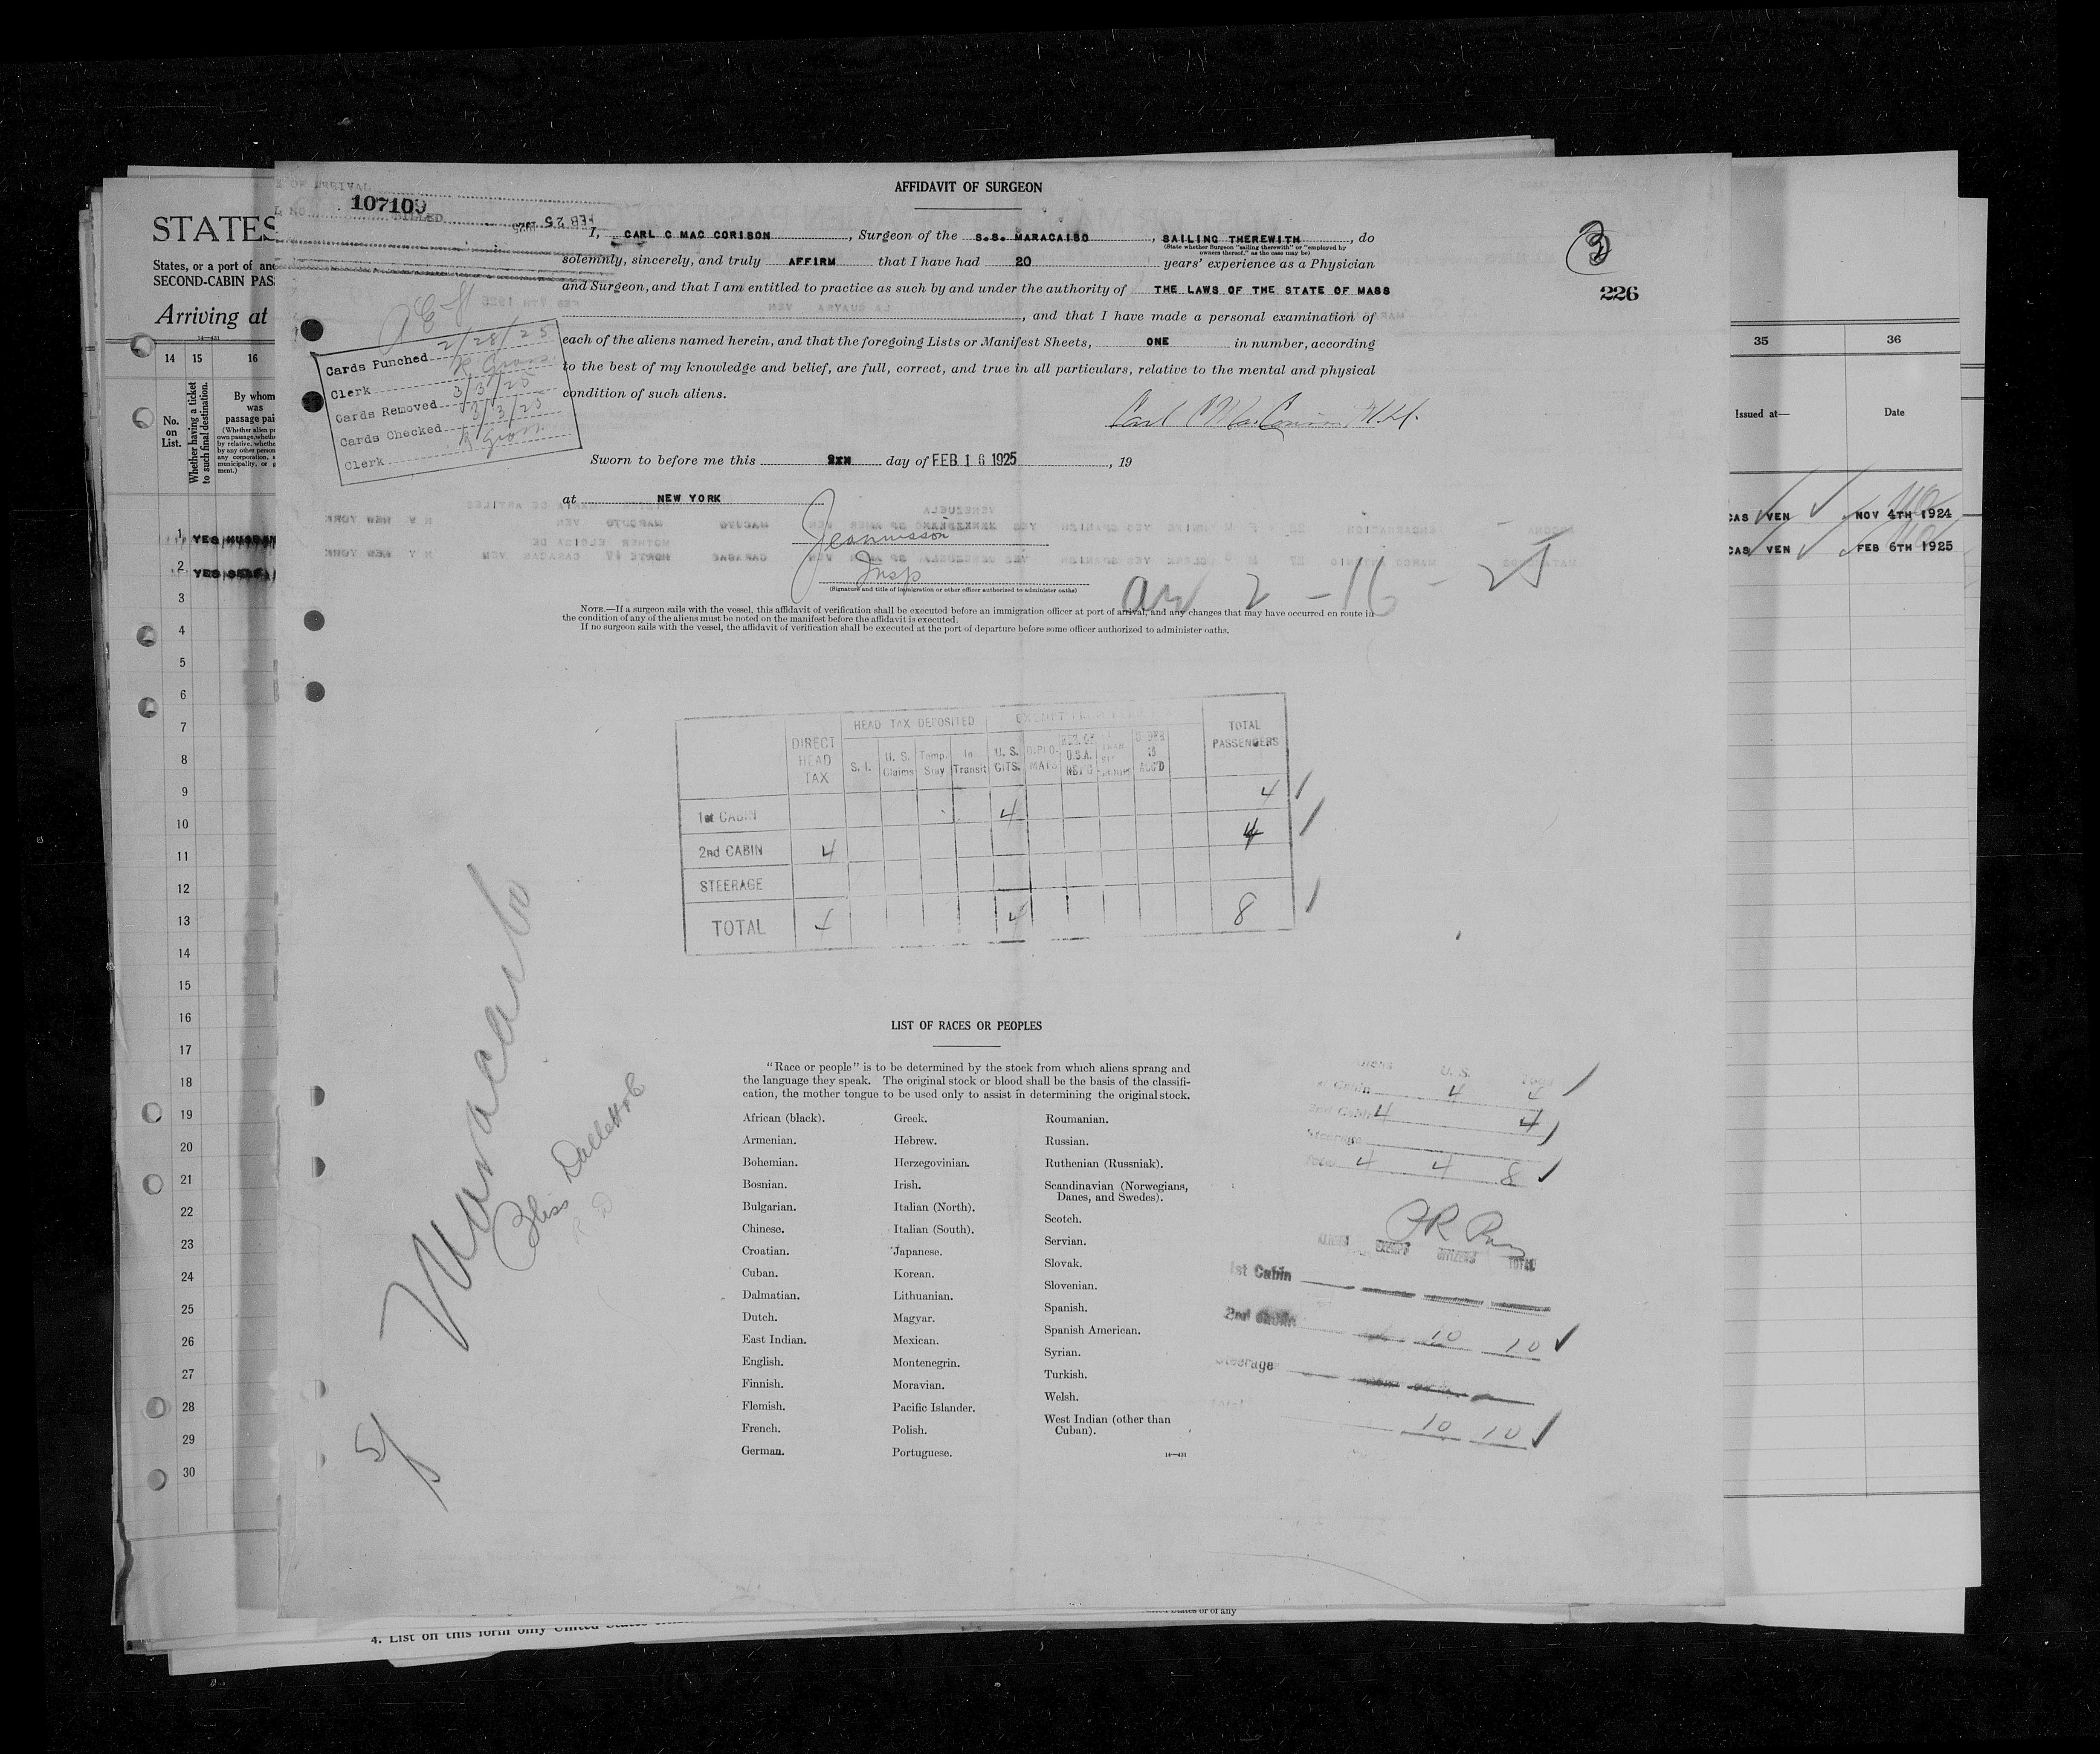 AFFIDAVIT OF SURGEON
107109
BILLED
FEB 25 1925
I, CARL C MAC CORISON, Surgeon of the S.S. MARACAIBO, SAILING THEREWITH, do
(State whether Surgeon "sailing therewith" or "employed by
owners thereof," as the case may be)
solemnly, sincerely, and truly AFFIRM that I have had 20 years' experience as a Physician
and Surgeon, and that I am entitled to practice as such by and under the authority of THE LAWS OF THE STATE OF MASS
, and that I have made a personal examination of
each of the aliens named herein, and that the foregoing Lists or Manifest Sheets, ONE in number, according
to the best of my knowledge and belief, are full, correct, and true in all particulars, relative to the mental and physical
condition of such aliens.
3
226
Cards Punched 2/28/25
Clerk
Cards Removed 3/3/25
Cards Checked 3/3/25
Clerk
Sworn to before me this day of FEB 16 1925, 19
at NEW YORK
Insp
(Signature and title of immigration or other officer authorized to administer oaths)
2-16-25
NOTE.—If a surgeon sails with the vessel, this affidavit of verification shall be executed before an immigration officer at port of arrival, and any changes that may have occurred en route in
the condition of any of the aliens must be noted on the manifest before the affidavit is executed.
If no surgeon sails with the vessel, the affidavit of verification shall be executed at the port of departure before some officer authorized to administer oaths.
HEAD TAX DEPOSITED
DIRECT HEAD TAX S. I. U. S. Claims Temp. Stay In Transit U. S. CITS. DIPLO-MATS TOTAL PASSENGERS
1st CABIN 4 4
2nd CABIN 4 4
STEERAGE
TOTAL 4 4 8
Maracaibo
Bliss Dallett & Co
LIST OF RACES OR PEOPLES
"Race or people" is to be determined by the stock from which aliens sprang and
the language they speak. The original stock or blood shall be the basis of the classifi-
cation, the mother tongue to be used only to assist in determining the original stock.
African (black).
Armenian.
Bohemian.
Bosnian.
Bulgarian.
Chinese.
Croatian.
Cuban.
Dalmatian.
Dutch.
East Indian.
English.
Finnish.
Flemish.
French.
German.
Greek.
Hebrew.
Herzegovinian.
Irish.
Italian (North).
Italian (South).
Japanese.
Korean.
Lithuanian.
Magyar.
Mexican.
Montenegrin.
Moravian.
Pacific Islander.
Polish.
Portuguese.
Roumanian.
Russian.
Ruthenian (Russniak).
Scandinavian (Norwegians,
Danes, and Swedes).
Scotch.
Servian.
Slovak.
Slovenian.
Spanish.
Spanish American.
Syrian.
Turkish.
Welsh.
West Indian (other than
Cuban).
14—431
U. S.
Cabin 4 4
2nd Cabin 4 4
Steerage
Total 4 4 8
ALIENS EXEMPTS CITIZENS TOTAL
1st Cabin
2nd Cabin 10 10
Steerage
Total 10 10
STATES
States, or a port of
SECOND-CABIN PAS
Arriving at
14—431
14 15 16
No. on List.
Whether having a ticket to such final destination.
By whom was passage pai
1 YES HUSBAN
2 YES
3
4
5
6
7
8
9
10
11
12
13
14
15
16
17
18
19
20
21
22
23
24
25
26
27
28
29
30
35 36
Issued at— Date
CAS VEN NOV 4TH 1924
CAS VEN FEB 6TH 1925
4. List on this form only United States